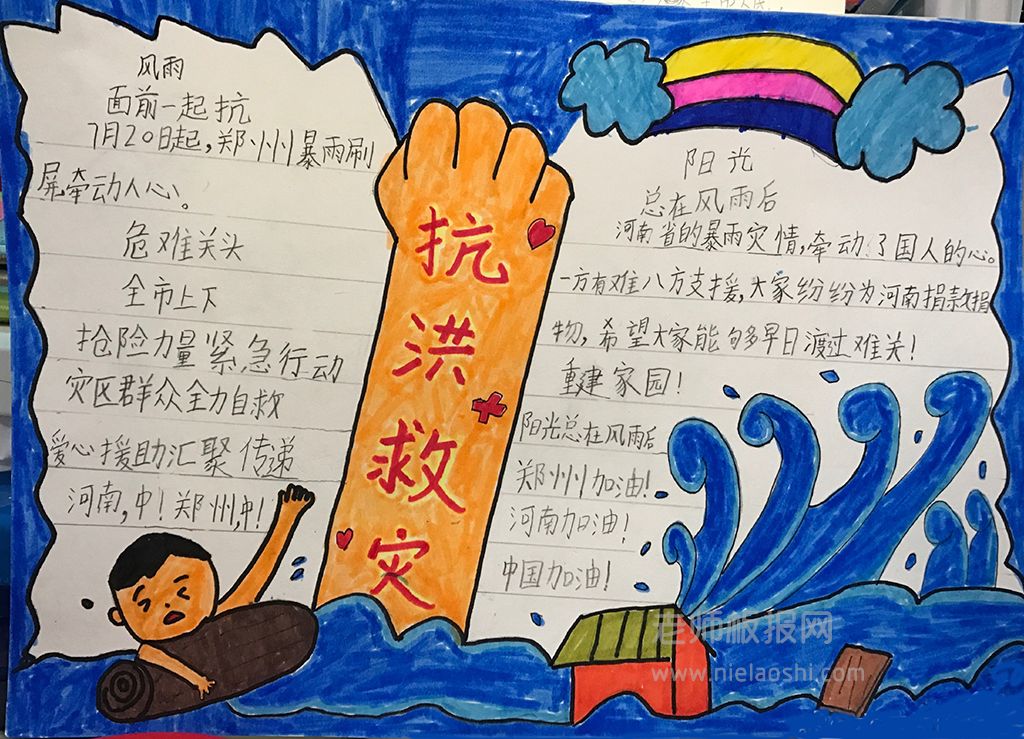 风雨
面前一起抗
7月20日起，郑州暴雨刷
屏牵动人心。
危难关头
全市上下
抢险力量紧急行动
灾区群众全力自救
爱心援助汇聚传递
河南，中！郑州，中！
抗
洪
救
灾
阳光
总在风雨后
河南省的暴雨灾情，牵动了国人的心。
一方有难八方支援，大家纷纷为河南捐款捐
物，希望大家能够早日渡过难关！
重建家园！
阳光总在风雨后
郑州加油！
河南加油！
中国加油！
老师板报网
www.nielaoshi.com